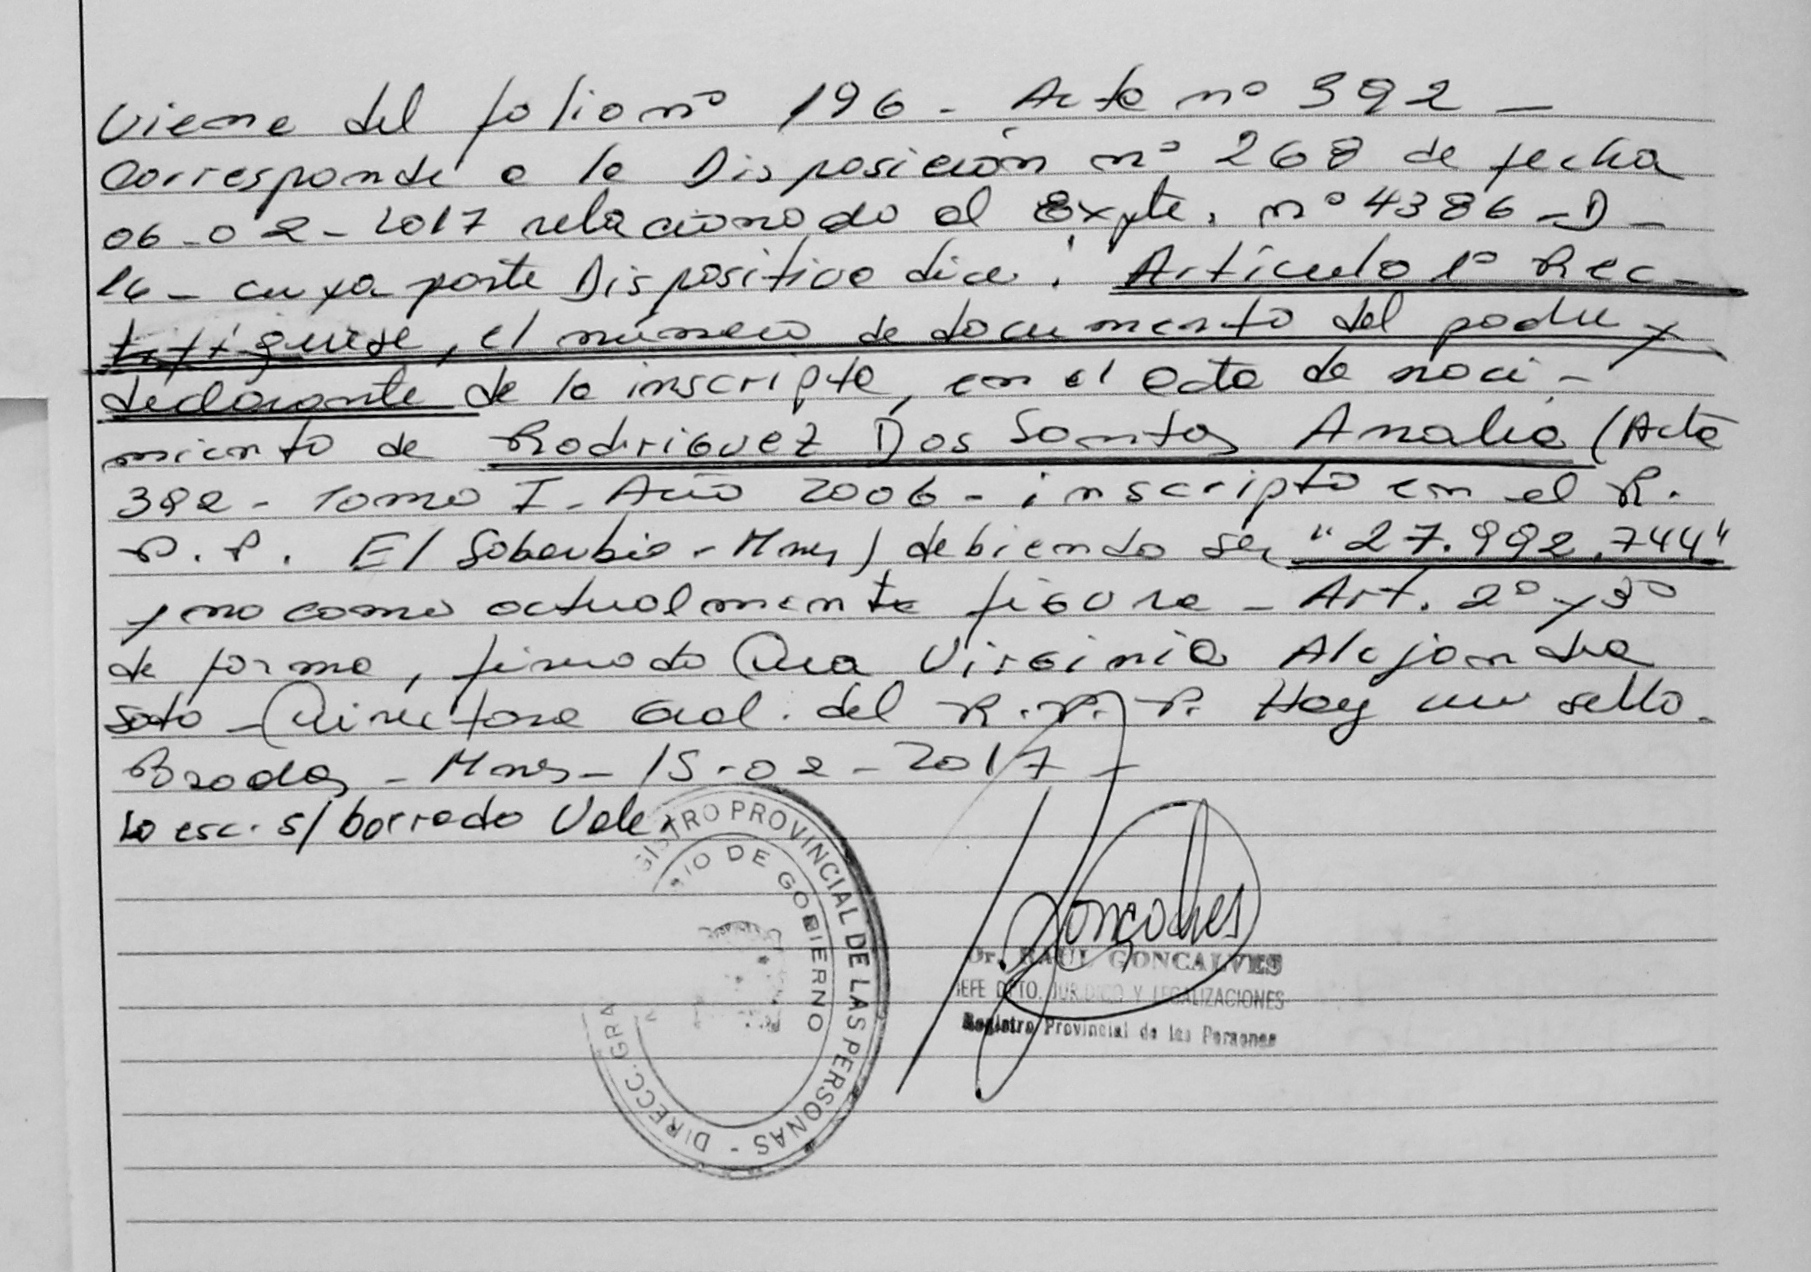 Viene del folio nº 196 - Acta nº 392 -
Corresponde a la Disposición nº 268 de fecha
06-02-2017 relacionado al Expte. nº 4386-D-
16 - cuya parte Dispositiva dice: Artículo 1º Rec-
tifíquese, el número de documento del padre y
declarante de la inscripta, en el acta de naci-
miento de Rodriguez Dos Santos Analia (Acta
392 - Tomo I - Año 2006 - inscripta en el R.
P.P. El Soberbio - Mnes) debiendo ser "27.992.744"
y no como actualmente figura - Art. 2º y 3º
de forma, firmado Dra Virginia Alejandra
Soto - Directora Gral. del R.P.P. Hay un sello.
Posadas - Mnes - 15-02-2017 -
Lo esc. s/ borrado Vale.
GISTRO PROVINCIAL DE LAS PERSONAS - DIRECC. GRA
IO DE GOBIERNO
Gonçalves
Dr. RAUL GONCALVES
JEFE DPTO. JURIDICO Y LEGALIZACIONES
Registro Provincial de las Personas